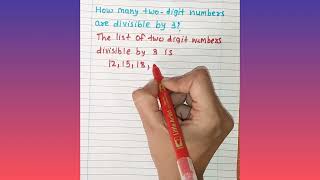 How many two-digit numbers
are divisible by 3?
The list of two digit numbers
divisible by 3 is
12, 15, 18,